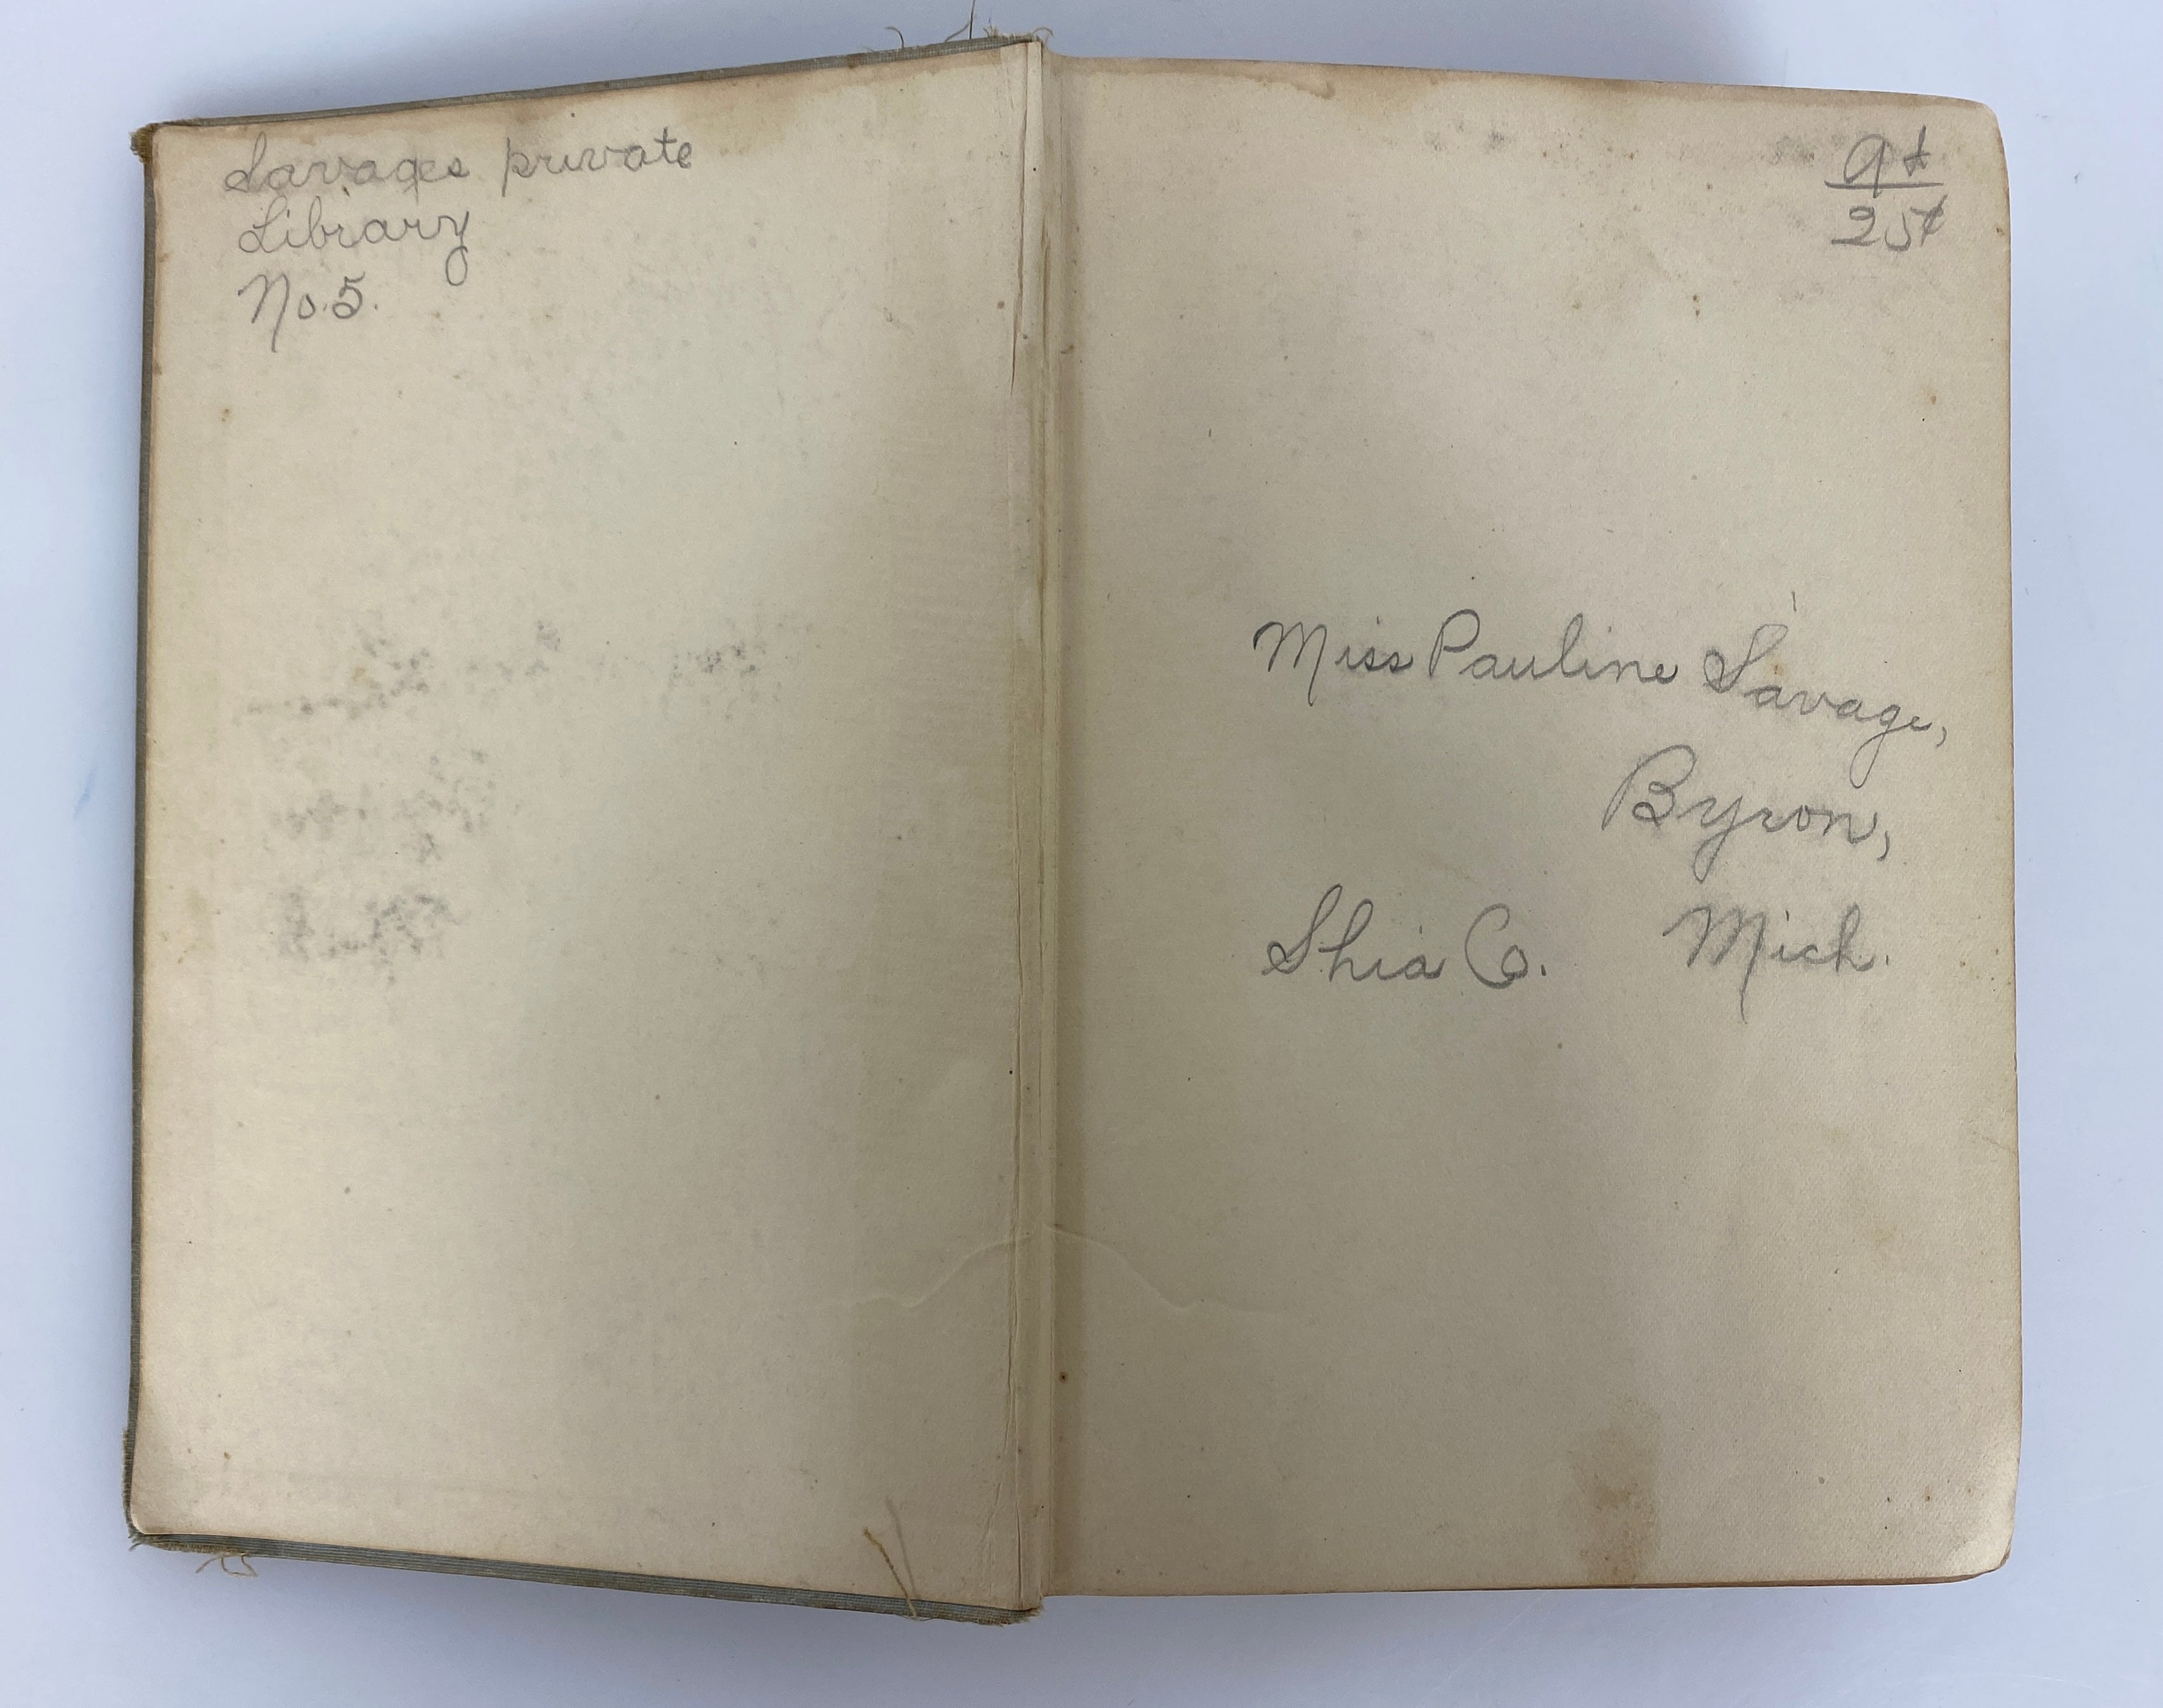 Savages private
Library
No. 5.
25¢
Miss Pauline Savage,
Byron,
Shia Co. Mich.